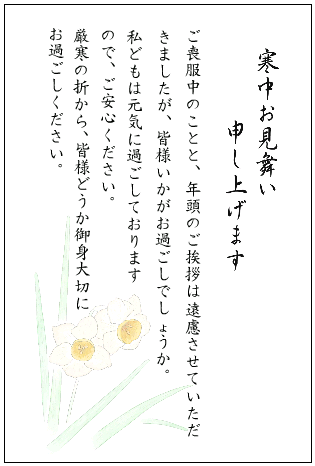 寒中お見舞い
申し上げます
ご喪服中のことと、年頭のご挨拶は遠慮させていただ
きましたが、皆様いかがお過ごしでしょうか。
私どもは元気に過ごしております
ので、ご安心ください。
厳寒の折から、皆様どうか御身大切に
お過ごしください。